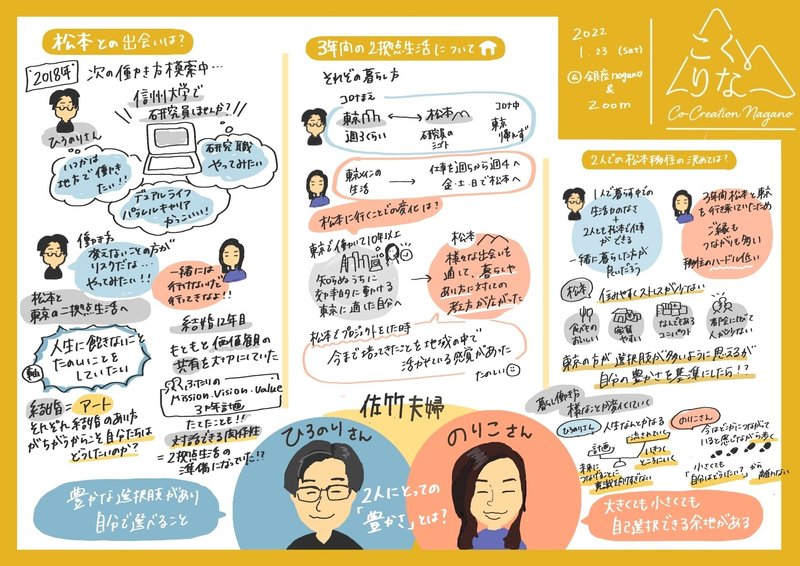 松本との出会いは？
2018年 次の働き方模索中…
信州大学で
研究員しませんか？
ひろのりさん
いつかは
地方で働き
たい!!
研究職
やってみたい
デュアルライフ
パラレルキャリア
かっこいい!
働き方
変えないことの方が
リスクだな…
やってみたい!!
一緒には
行けないけど
行ってきなよ!!
松本と
東京の二拠点生活へ
人生に飽きないこと
たのしいことを
していたい
軸
結婚＝アート
それぞれ結婚のあり方
がちがうからこそ自分たちは
どうしたいのか？
結婚12年目
もともと価値観の
共有を大事にしていた
ふたりの
Mission・Vision・Value
3カ年計画
たてたことも!!
対話できる関係性
＝2拠点生活の
準備になっていた!?
3年間の2拠点生活について
それぞれの暮らし方
コロナまえ
東京
週1くらい
松本
研究員の
シゴト
コロナ中
東京
帰れず
東京メインの
生活
仕事を週5から週4へ
金・土・日で松本へ
松本に行くことでの変化は？
東京で働いて10年以上
知らぬうちに
効率的に動ける
東京に適した自分へ
松本
様々な出会いを
通して、暮らしや
あり方に対しての
考え方が広がった
松本でプロジェクトをした時
今まで培ってきたことを地域の中で
活かせている感覚があった
たのしい
2022
1.23 (Sat)
@銀座nagano
&
Zoom
こくりな
Co-Creation Nagano
2人での松本移住の決めては？
1人で暮らす中での
生活力のなさ
+
2人とも松本で仕事
ができる
一緒に暮らした方が
良いだろう
3年間松本と東京
を行き来していたため
ご縁も
つながりも多い
移住のハードル低い
松本 住みやすくストレスが少ない
食べもの
おいしい
家賃
やすい
なんでもある
コンパクト
東京に比べて
人が少ない
東京の方が選択肢が多いように思えるが
自分の豊かさを基準にしたら!?
暮らし働き方
様々なことが変化していく
ひろのりさん
人生なんとかなる
流されていく
計画
いきつく
ところにいく
未来に
つなげることに
意識を向けすぎない
のりこさん
今はどこかにつながって
いると感じながら歩く
小さくても
「自分はどうしたい？」から
離れない
佐竹夫婦
ひろのりさん
のりこさん
2人にとっての
「豊かさ」とは？
豊かな選択肢があり
自分で選べること
大きくても小さくても
自己選択できる余地がある